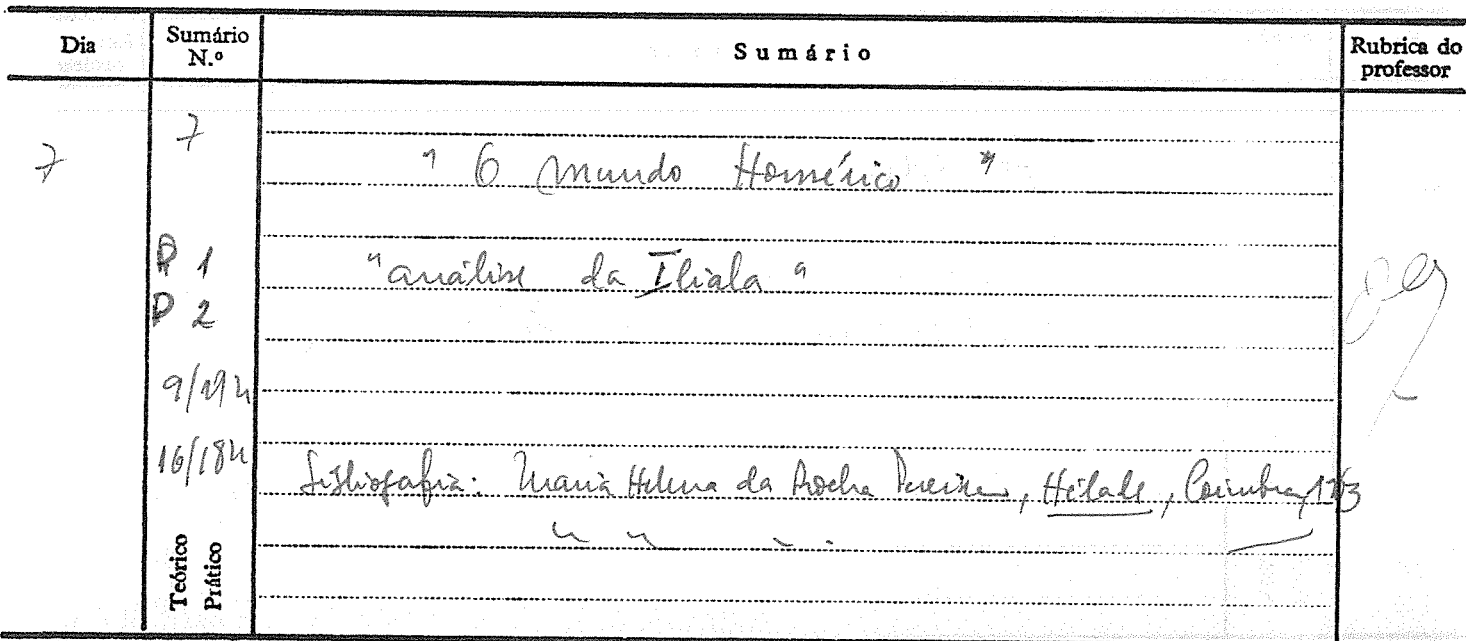 Dia Sumário N.º Sumário Rubrica do professor
7 7
" O Mundo Homérico "
P 1 "análise da Ilíada"
P 2
9/11h
16/18h
Bibliografia: Maria Helena da Rocha Pereira, Hélade, Coimbra,
" " " "
Teórico
Prático